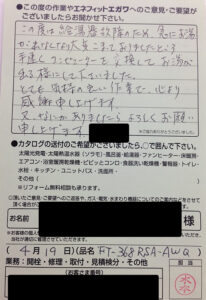 ●この度の作業やエネフィットエガワへのご意見・ご要望が
ございましたらお聞かせ下さい。
この度は給湯器故障のため、急にお湯が
出なくなり大変こまっておりましたところ
手速くコンセーターを交換してお湯が
出る様にして下さいました。
とても気持の良い作業で、心より
感謝申し上げます。
又、何かありましたらよろしくお願い
申し上げます
●カタログの送付のご希望がございましたら、○で囲んで下さい。
太陽光発電・太陽熱温水器(ソラモ)・風呂釜・給湯器・ファンヒーター・床暖房
エアコン・浴室暖房乾燥機・ビピッとコンロ・食器洗い乾燥機・警報器・トイレ
水栓・キッチン・ユニットバス・洗面所・
その他(
※リフォーム無料相談も承ります。
お名前
様
(4月19日)(品名) FT-368RSA-AWQ)
業務:開栓・修理・取付・見積積分・その他
お客さま番号
担当